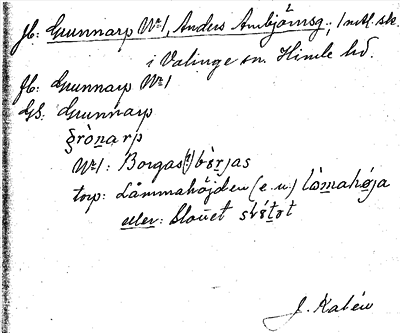 Jb: Gunnarp No 1, Anders Arnbjörnsg.; 1 mtl. sk.
i Valinge sn. Himle hd.
Jb: Gunnarp No 1
GS: Gunnarp
grònarp
No 1: Borgas(?) bòrjas
torp: Lämmahöjden (e. u.) lòmahøja
eller: Slottet slòtet
J. Kalén